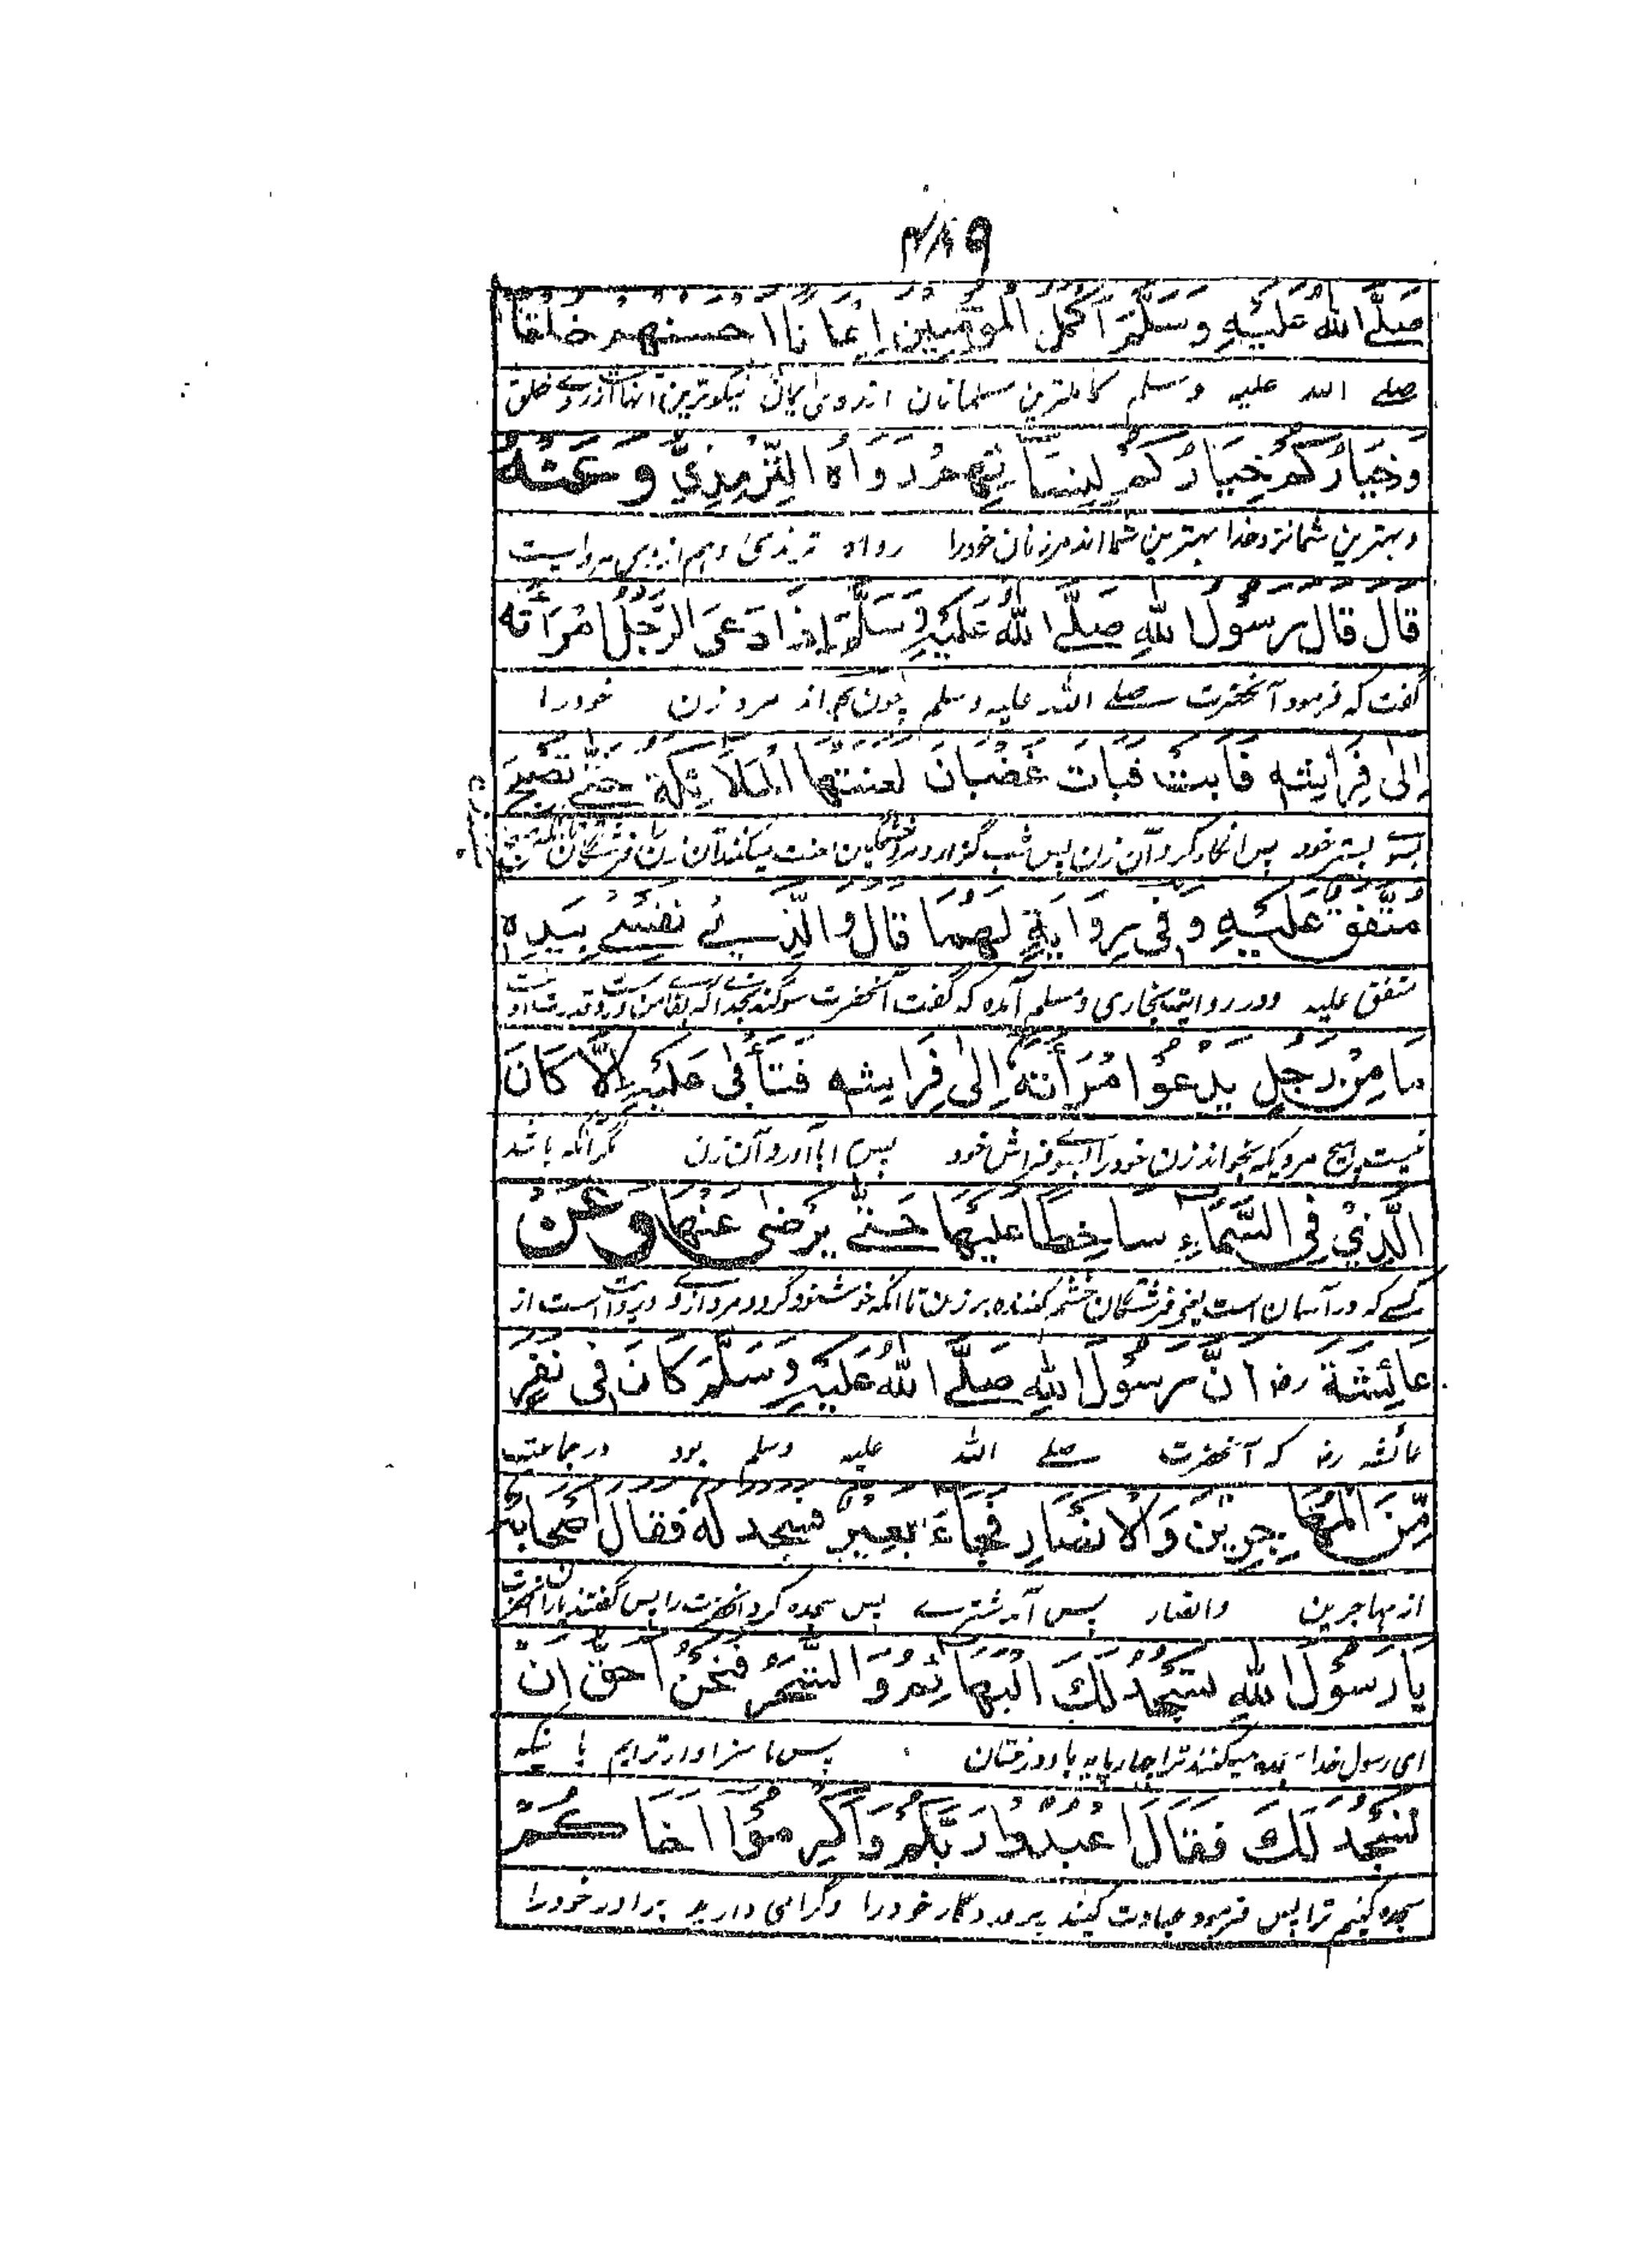 صَلَّے اللهُ عَلَيْهِ وَسَلَّمَ اَكْمَلُ الْمُؤْمِنِيْنَ اِيْمَانًا اَحْسَنُهُمْ خُلُقًا
صلے اللہ علیہ وسلم کاملترین مسلمانان از روی ایمان نیکوترین آنہاست از روے خلق
وَخِيَارُكُمْ خِيَارُكُمْ لِنِسَائِهِمْ رَوَاهُ التِّرْمِذِيُّ وَعَنْهُ
وبہترین شما نزد خدا بہترین شما اند مر زنان خود را رواہ ترمذی وہم از وی روایت
قَالَ قَالَ رَسُوْلُ اللهِ صَلَّے اللهُ عَلَيْهِ وَسَلَّمَ اِذَا دَعَی الرَّجُلُ امْرَأَتَهُ
گفت کہ فرمود آنحضرت صلے اللہ علیہ وسلم چون بخواند مرد زن خود را
اِلٰی فِرَاشِهٖ فَاَبَتْ فَبَاتَ غَضْبَانَ لَعَنَتْهَا الْمَلَائِكَةُ حَتّٰے تُصْبِحَ
بسوے بستر خود پس انکار کرد آن زن پس شب گزارد مرد خشمگین لعنت میکنند آن زن را فرشتگان
مُتَّفَقٌ عَلَيْهِ وَفِیْ رِوَايَةٍ لَهُمَا قَالَ وَالَّذِیْ نَفْسِیْ بِيَدِهٖ
متفق علیہ ودر روایت بخاری ومسلم آمدہ کہ گفت آنحضرت سوگند بخدا کہ بقای من در دست قدرت اوست
مَا مِنْ رَجُلٍ يَدْعُوْا امْرَأَتَهُ اِلٰی فِرَاشِهٖ فَتَأْبٰی عَلَيْهِ اِلَّا كَانَ
نیست ہیچ مردیکہ بخواند زن خود را بسوے فراش خود پس ابا آورد آن زن مگر آنکہ باشد
الَّذِیْ فِی السَّمَاءِ سَاخِطًا عَلَيْهَا حَتّٰے يَرْضٰی عَنْهَا وَعَنْ
کسے کہ در آسمان است یعنی فرشتگان خشم کنندہ بر زن تا آنکہ خوشنود گردد مرد از وے وروایت است از
عَائِشَةَ رض اَنَّ رَسُوْلَ اللهِ صَلَّے اللهُ عَلَيْهِ وَسَلَّمَ كَانَ فِیْ نَفَرٍ
عائشہ رض کہ آنحضرت صلے اللہ علیہ وسلم بود در جماعت
مِّنَ الْمُهَاجِرِيْنَ وَالْاَنْصَارِ فَجَاءَ بَعِيْرٌ فَسَجَدَ لَهُ فَقَالَ اَصْحَابُهُ
از مہاجرین وانصار پس آمد شترے پس سجدہ کرد آنحضرت را پس گفتند یاران آنحضرت
يَا رَسُوْلَ اللهِ تَسْجُدُ لَكَ الْبَهَائِمُ وَالشَّجَرُ فَنَحْنُ اَحَقُّ اَنْ
ای رسول خدا سجدہ میکنند ترا چارپایہا ودرختان پس ما سزاوارتریم بآنکہ
نَسْجُدَ لَكَ فَقَالَ اعْبُدُوْا رَبَّكُمْ وَاَكْرِمُوْا اَخَاكُمْ
سجدہ کنیم ترا پس فرمود عبادت کنید پروردگار خود را وگرامی دارید برادر خود را